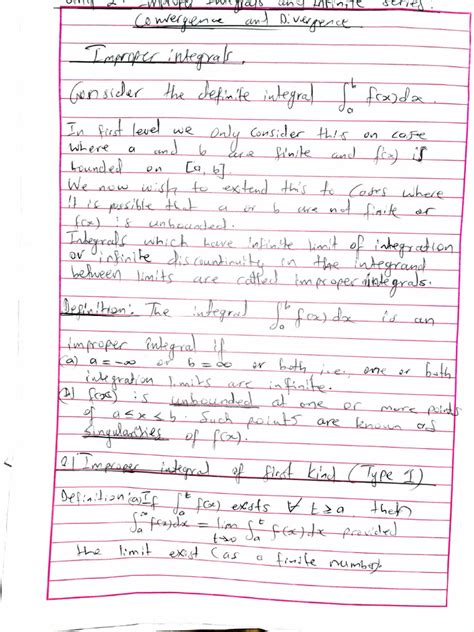 Unit 2: Improper Integrals and Infinite series.
Convergence and Divergence
Improper integrals.
Consider the definite integral ∫_a^b f(x)dx.
In first level we only consider this on case
where a and b are finite and f(x) is
bounded on [a, b]
We now wish to extend this to cases where
it is possible that a or b are not finite or
f(x) is unbounded.
Integrals which have infinite limit of integration
or infinite discontinuity in the integrand
between limits are called improper integrals.
Definition: The integral ∫_a^b f(x) dx is an
improper integral if
(a) a = -∞ or b = ∞ or both, i.e., one or both
integration limits are infinite.
(b) f(x) is unbounded at one or more points
of a ≤ x ≤ b. Such points are known as
singularities of f(x).
Improper integral of first kind (Type I)
Definition (a) If ∫_a^t f(x) exists ∀ t ≥ a, then
∫_a^∞ f(x)dx = lim_{t→∞} ∫_a^t f(x)dx provided
the limit exist (as a finite number)